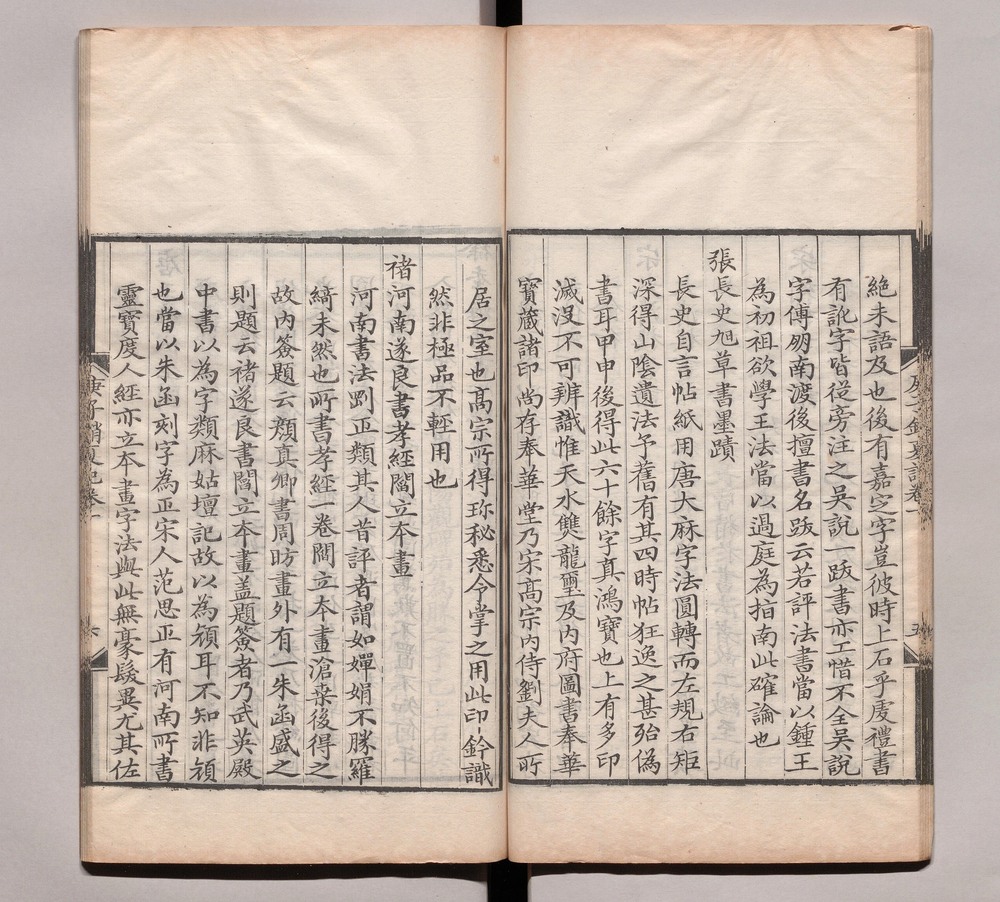 絶未語及也後有嘉定字豈彼時上石乎虔禮書
有訛字皆從旁注之吳說一跋書亦工惜不全吳說
字傅朋南渡後擅書名跋云若評法書當以鍾王
為初祖欲學王法當以過庭為指南此確論也
張長史旭草書墨蹟
長史自言帖紙用唐大麻字法圓轉而左規右矩
深得山陰遺法予舊有其四時帖狂逸之甚殆偽
書耳甲申後得此六十餘字真鴻寶也上有多印
滅沒不可辨識惟天水雙龍璽及內府圖書奉華
寶蔵諸印尚存奉華堂乃宋髙宗內侍劉夫人所
居之室也髙宗所得珎秘悉令掌之用此印鈐識
然非極品不輕用也
褚河南遂良書孝經閻立本畫
河南書法劉正類其人昔評者謂如嬋娟不勝羅
綺未然也所書孝經一卷閻立本畫滄桒後得之
故內簽題云顏真卿書周昉畫外有一朱函盛之
則題云褚遂良書閻立本畫盖題簽者乃武英殿
中書以為字類麻姑壇記故以為顏耳不知非顏
也當以朱函刻字為正宋人范思正有河南所書
靈寶度人經亦立本畫字法與此無豪髮異尤其佐
庚子銷夏記卷一
五
庚子銷夏記卷一
六